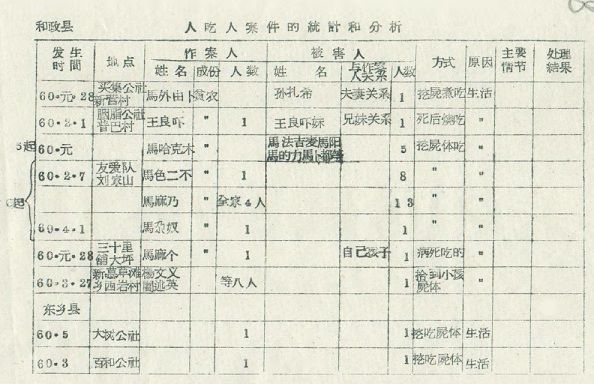 和政县 人吃人案件的統計和分析
发生时間 地点 作案人 被害人 方式 原因 主要情节 处理結果
姓名 成份 人数 姓名 与作案人关系 人数
60·元·28 买集公社新晋村 馬外由卜 貧农 孙扎希 夫妻关系 1 挖屍煮吃 生活
60·2·1 胭脂公社普巴村 王良吓 〃 1 王良吓妹 兄妹关系 1 死后燒吃 〃
60·元 馬哈克木 〃 5 挖屍体吃 〃
60·2·7 友爱队刘家山 馬色二不 〃 1 8 〃 〃
馬麻乃 〃 全家4人 13 〃 〃
60·4·1 馬尕奴 〃 1 1 〃 〃
60·元·28 三十里铺大坪 馬麻个 〃 1 自己孩子 1 病死吃的 〃
60·3·27 等八人 1 拾到小孩屍体 〃
东乡县
60·5 大树公社 1 1 挖吃屍体 生活
60·3 百和公社 1 1 挖吃屍体 生活